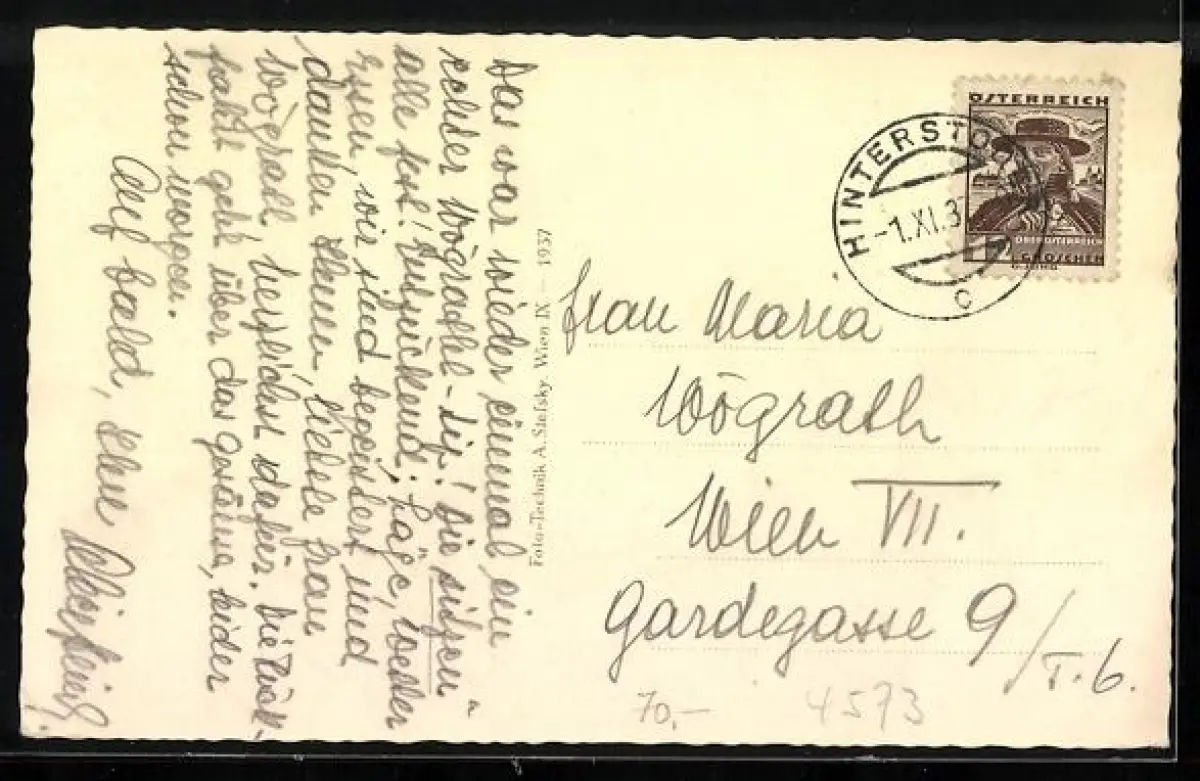 Das war wieder einmal ein
echter Wögrath-Tip! Die "sitzen"
alle fest! Entzückend, Lage, Wetter
Essen, wir sind begeistert und
danken Ihnen, liebste Frau
Wögrath, herzlichst dafür. Die Rück-
fahrt geht über das gesäuse, leider
schon morgen.
Auf bald, Ihre
Foto-Technik A. Stefsky, Wien IX — 1937
ÖSTERREICH
12
OBERÖSTERREICH
GROSCHEN
-1.XI.3
C
Frau Maria
Wögrath
Wien VII.
Gardegasse 9/
T. 6.
70,-
4573